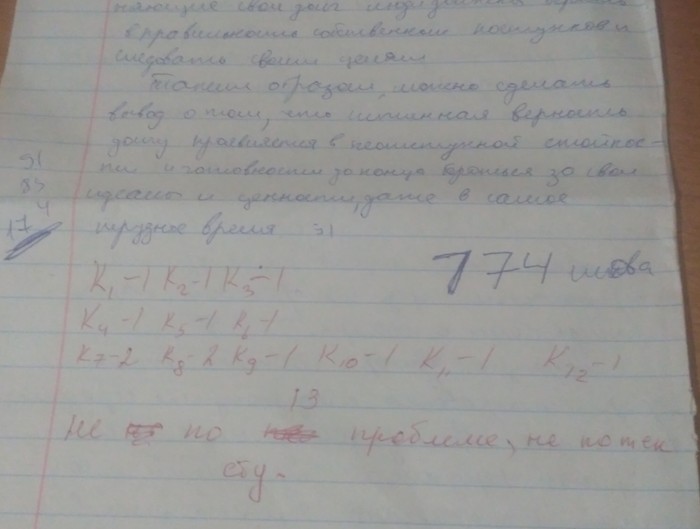 няющие свой долг
в правильности собственных поступков и
следовать своим целям
Таким образом, можно сделать
вывод о том, что истинная верность
долгу проявляется в неотступной стойкос-
ти и готовности до конца бороться за свои
идеалы и ценности, даже в самое
трудное время 31
91
83
4
174 слова
K1-1 K2-1 K3-1
K4-1 K5-1 K6-1
K7-2 K8-2 K9-1 K10-1 K11-1 K12-1
13
Не по проблеме, не по тек
сту.